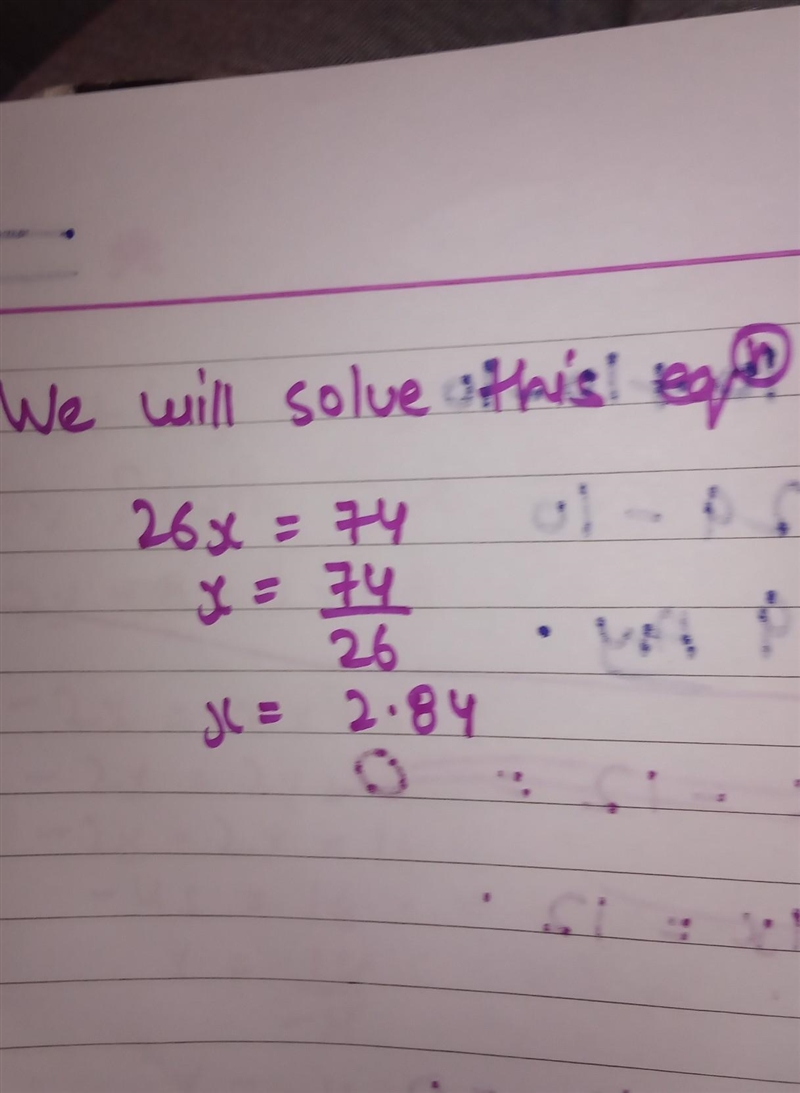 We will solve this eqn
26x = 74
x = 74
26
x = 2.84